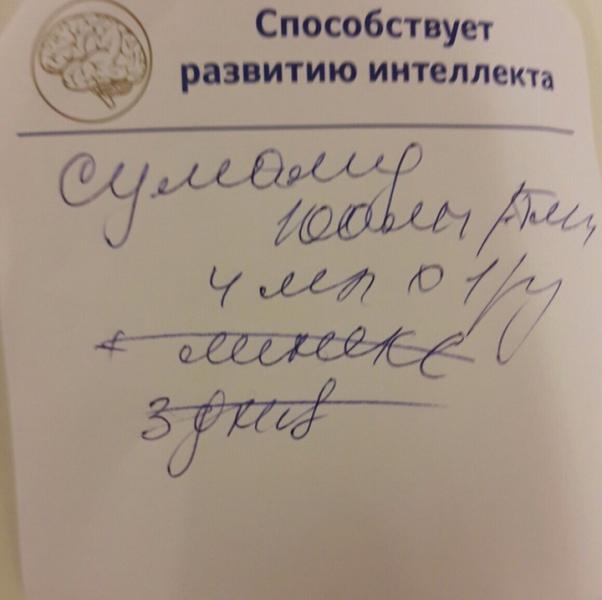 Способствует
развитию интеллекта
Сумамед
100мг/5мл
4 мл х 1 р/д
+ линекс
3 дня